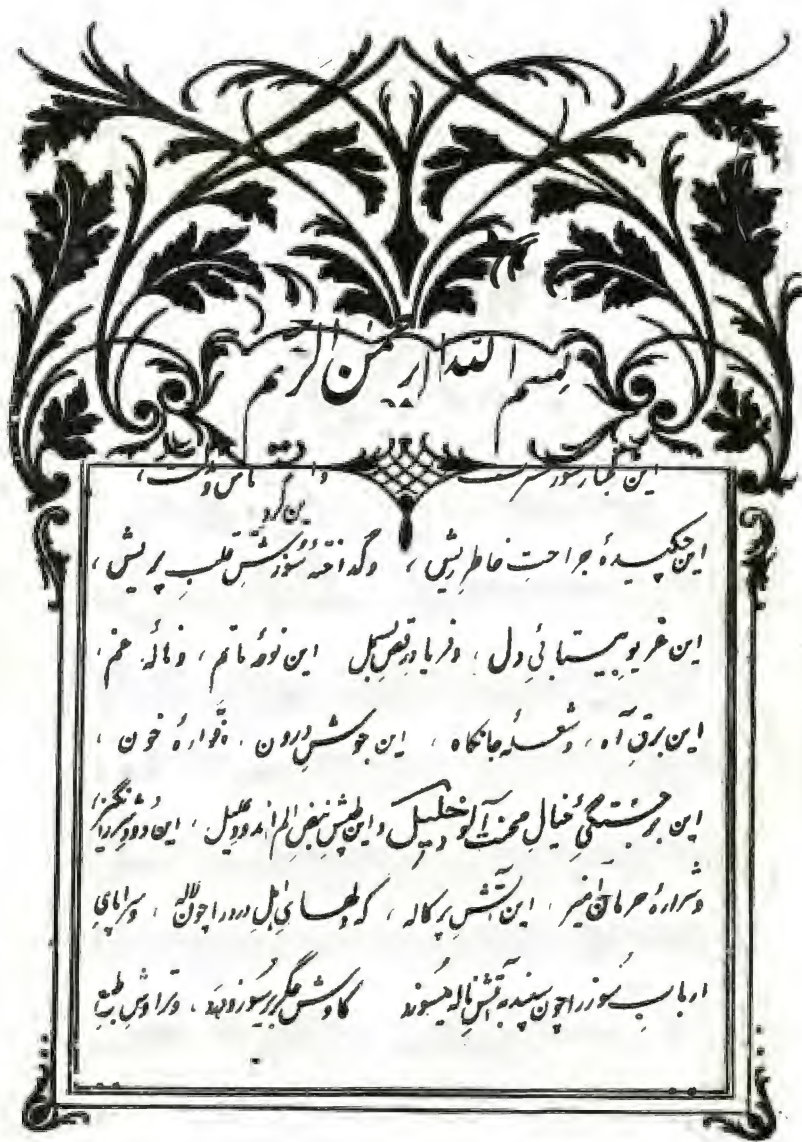 بسم الله الرحمن الرحیم
این
این چکیدهٔ جراحتِ خاطرِ ریش، وگداختهٔ سُوزشِ قلبِ پریش،
این غریوِ بیتابیِ دل، وفریادِ رقصِ بسمل این نوحهٔ ماتم، ونالهٔ غم،
این برقِ آه، وشعلهٔ جانکاه، این جوششِ درون، وفوارهٔ خون،
این برجستگیِ خیالِ محنت آلودِ واین طپشِ نبضِ الم اندودِ علیل، این دودِ
وشرارهٔ حرمان این آتشِ پرکاله، که دلهای اهلِ درد را چون لاله، وسراپایِ
اربابِ سُوز را چون سپند به آتشِ ناله میسوزد کاوشِ جگرِ پرسوز وتراوشِ طبعِ